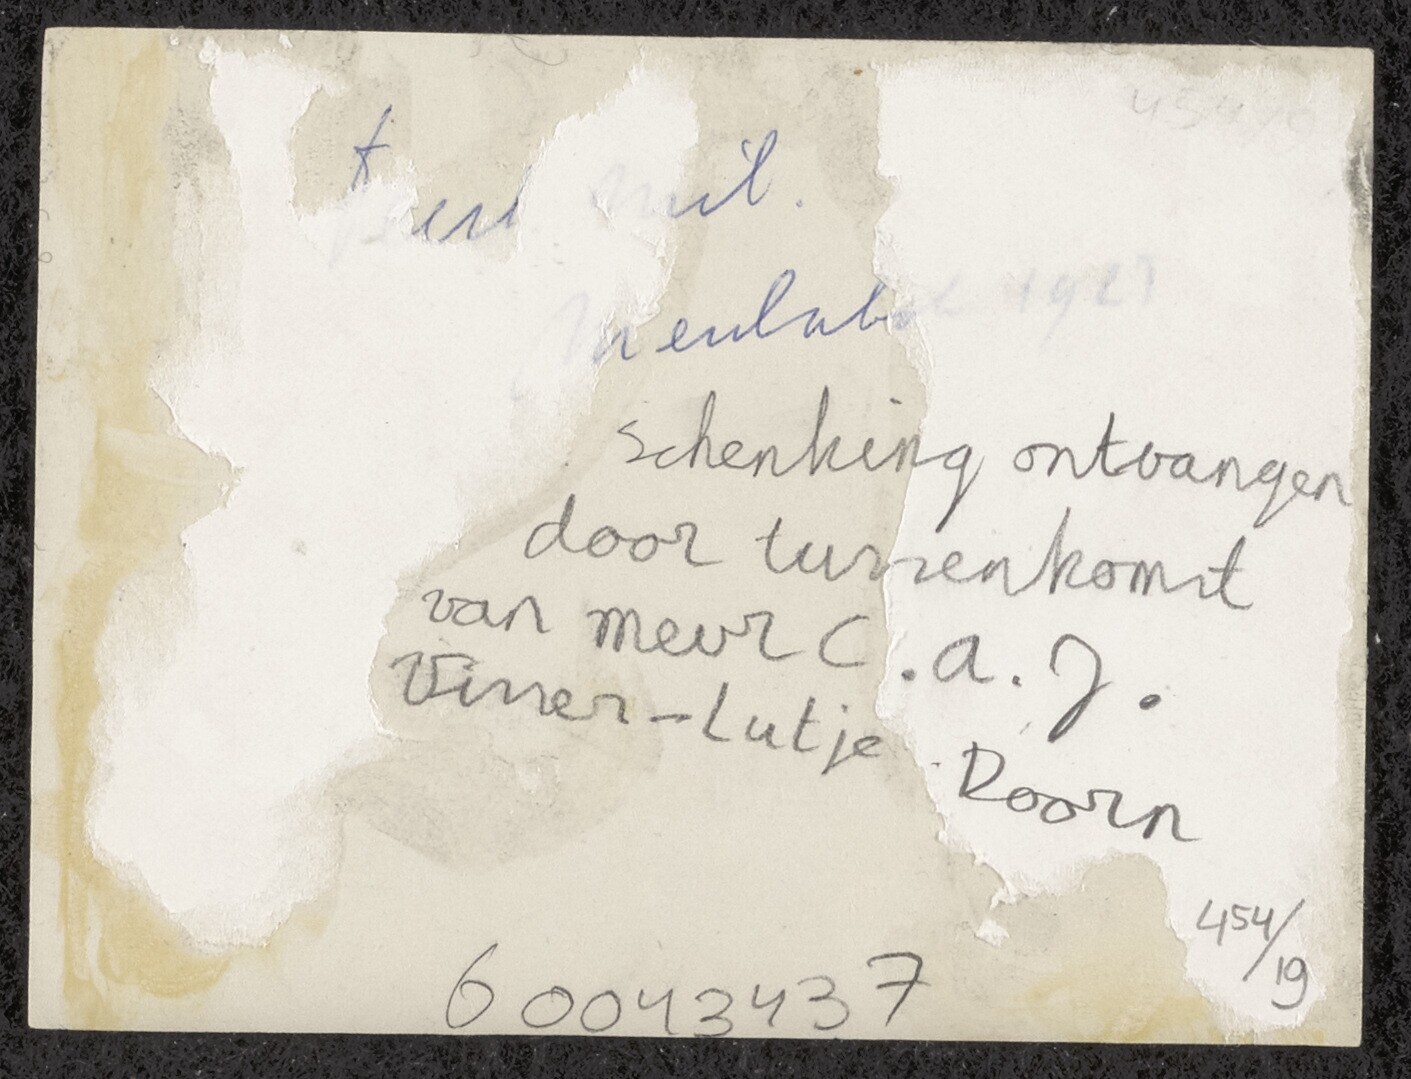 454/
Meulaboh 1921
schenking ontvangen
door tussenkomst
van mevr C.A.J.
Visser-Lutje
Roorn
454/19
60043437